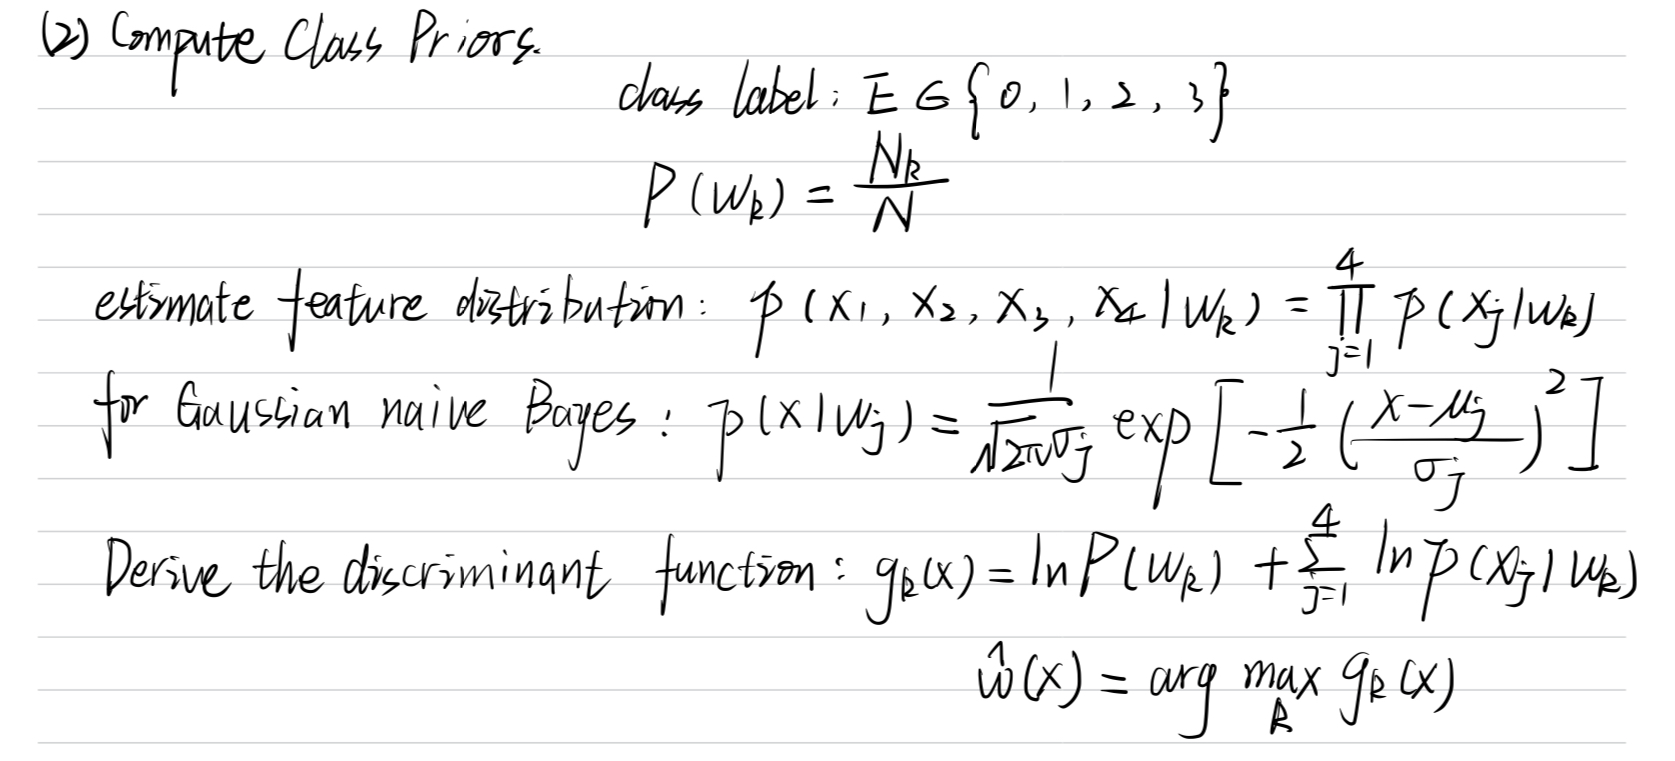 (2) Compute Class Priors.
class label: E ∈ {0, 1, 2, 3}
P(w_k) = N_k / N
estimate feature distribution: p(x_1, x_2, x_3, x_4 | w_k) = ∏_{j=1}^{4} p(x_j | w_k)
for Gaussian naive Bayes: p(x | w_j) = 1 / (√(2π) σ_j) exp[-1/2 ((x - μ_j) / σ_j)^2]
Derive the discriminant function: g_k(x) = ln P(w_k) + ∑_{j=1}^{4} ln p(x_j | w_k)
ŵ(x) = arg max_k g_k(x)